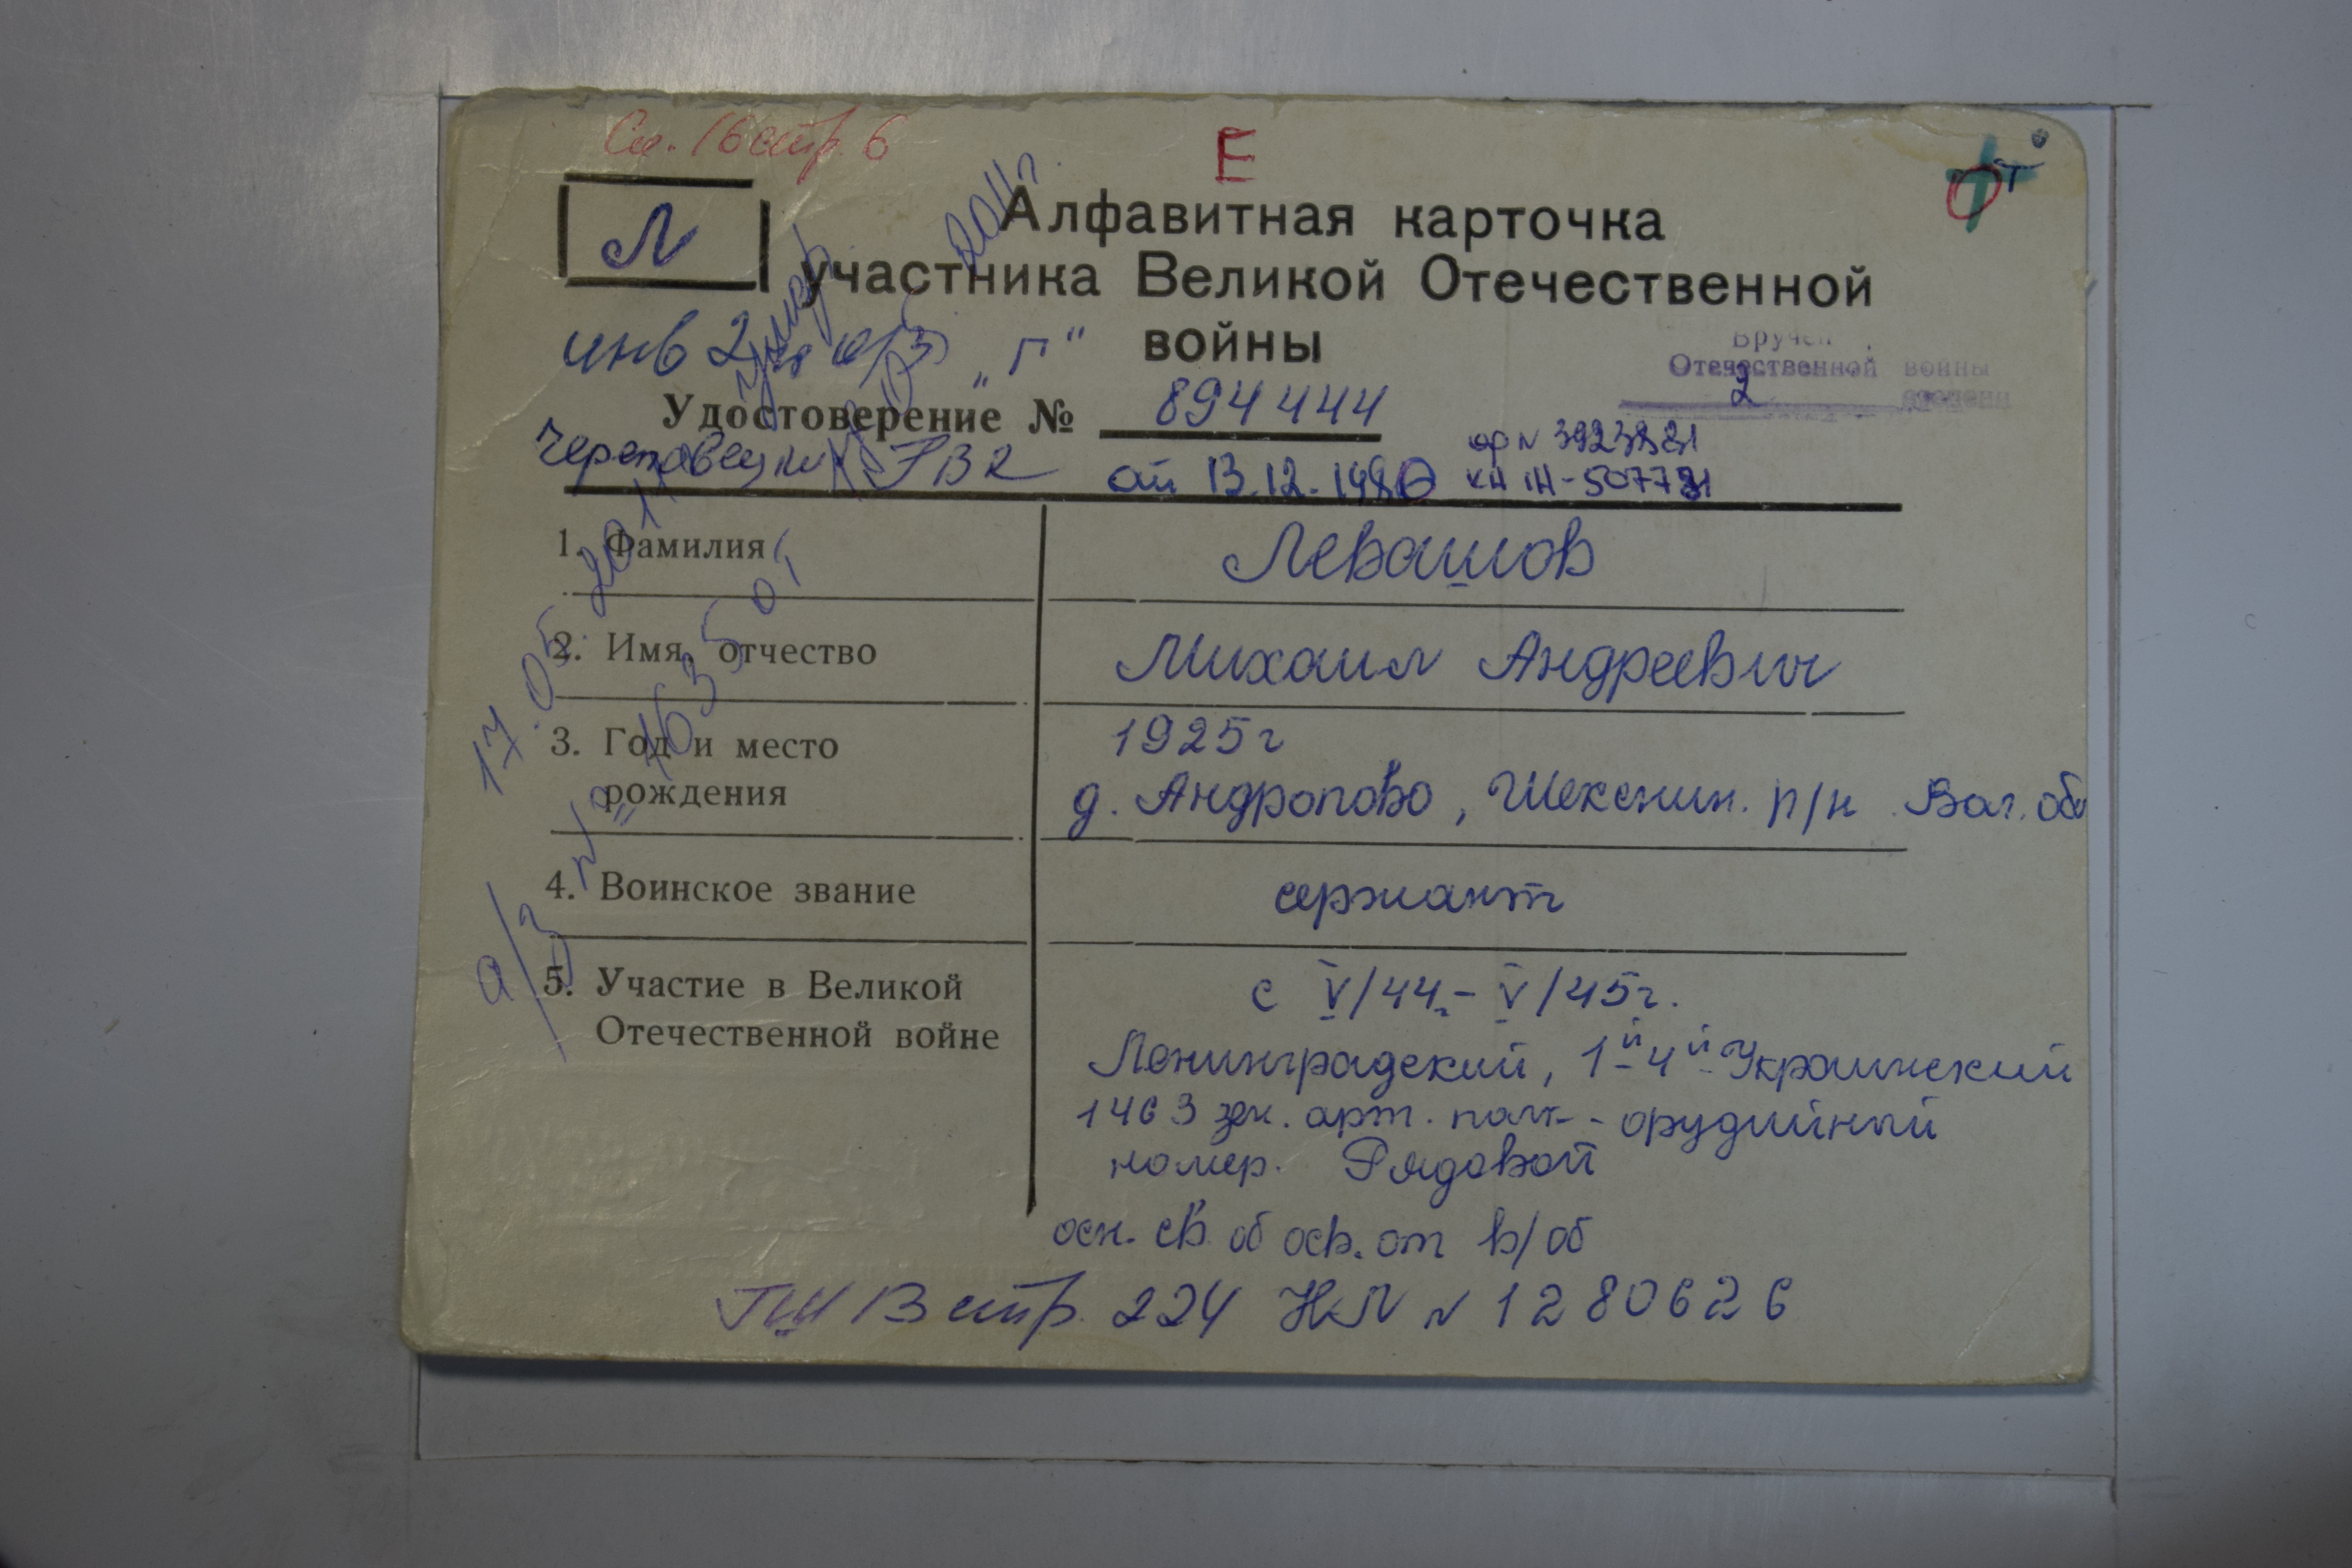 См. 16 стр. 6
Е
Л
Алфавитная карточка
участника Великой Отечественной
войны
инв 2 "Г"
Вручен
Отечественной войны
2 степени
Удостоверение № 894444
Череповецкий РВК от 13.12.1980
ор № 3923821
1. Фамилия Левашов
2. Имя, отчество Михаил Андреевич
3. Год и место 1925г
рождения д. Андропово, Шекснин. р/н Вол. обл
4. Воинское звание сержант
5. Участие в Великой с V/44 - V/45г.
Отечественной войне
Ленинградский, 1й-4й Украинский
1463 зен. арт. полк - орудийный
номер. Рядовой
осн. св. об осв. от в/об
ГШ 13 стр. 224 НЛ № 1280626
умер
17.05.2011г
а/з №